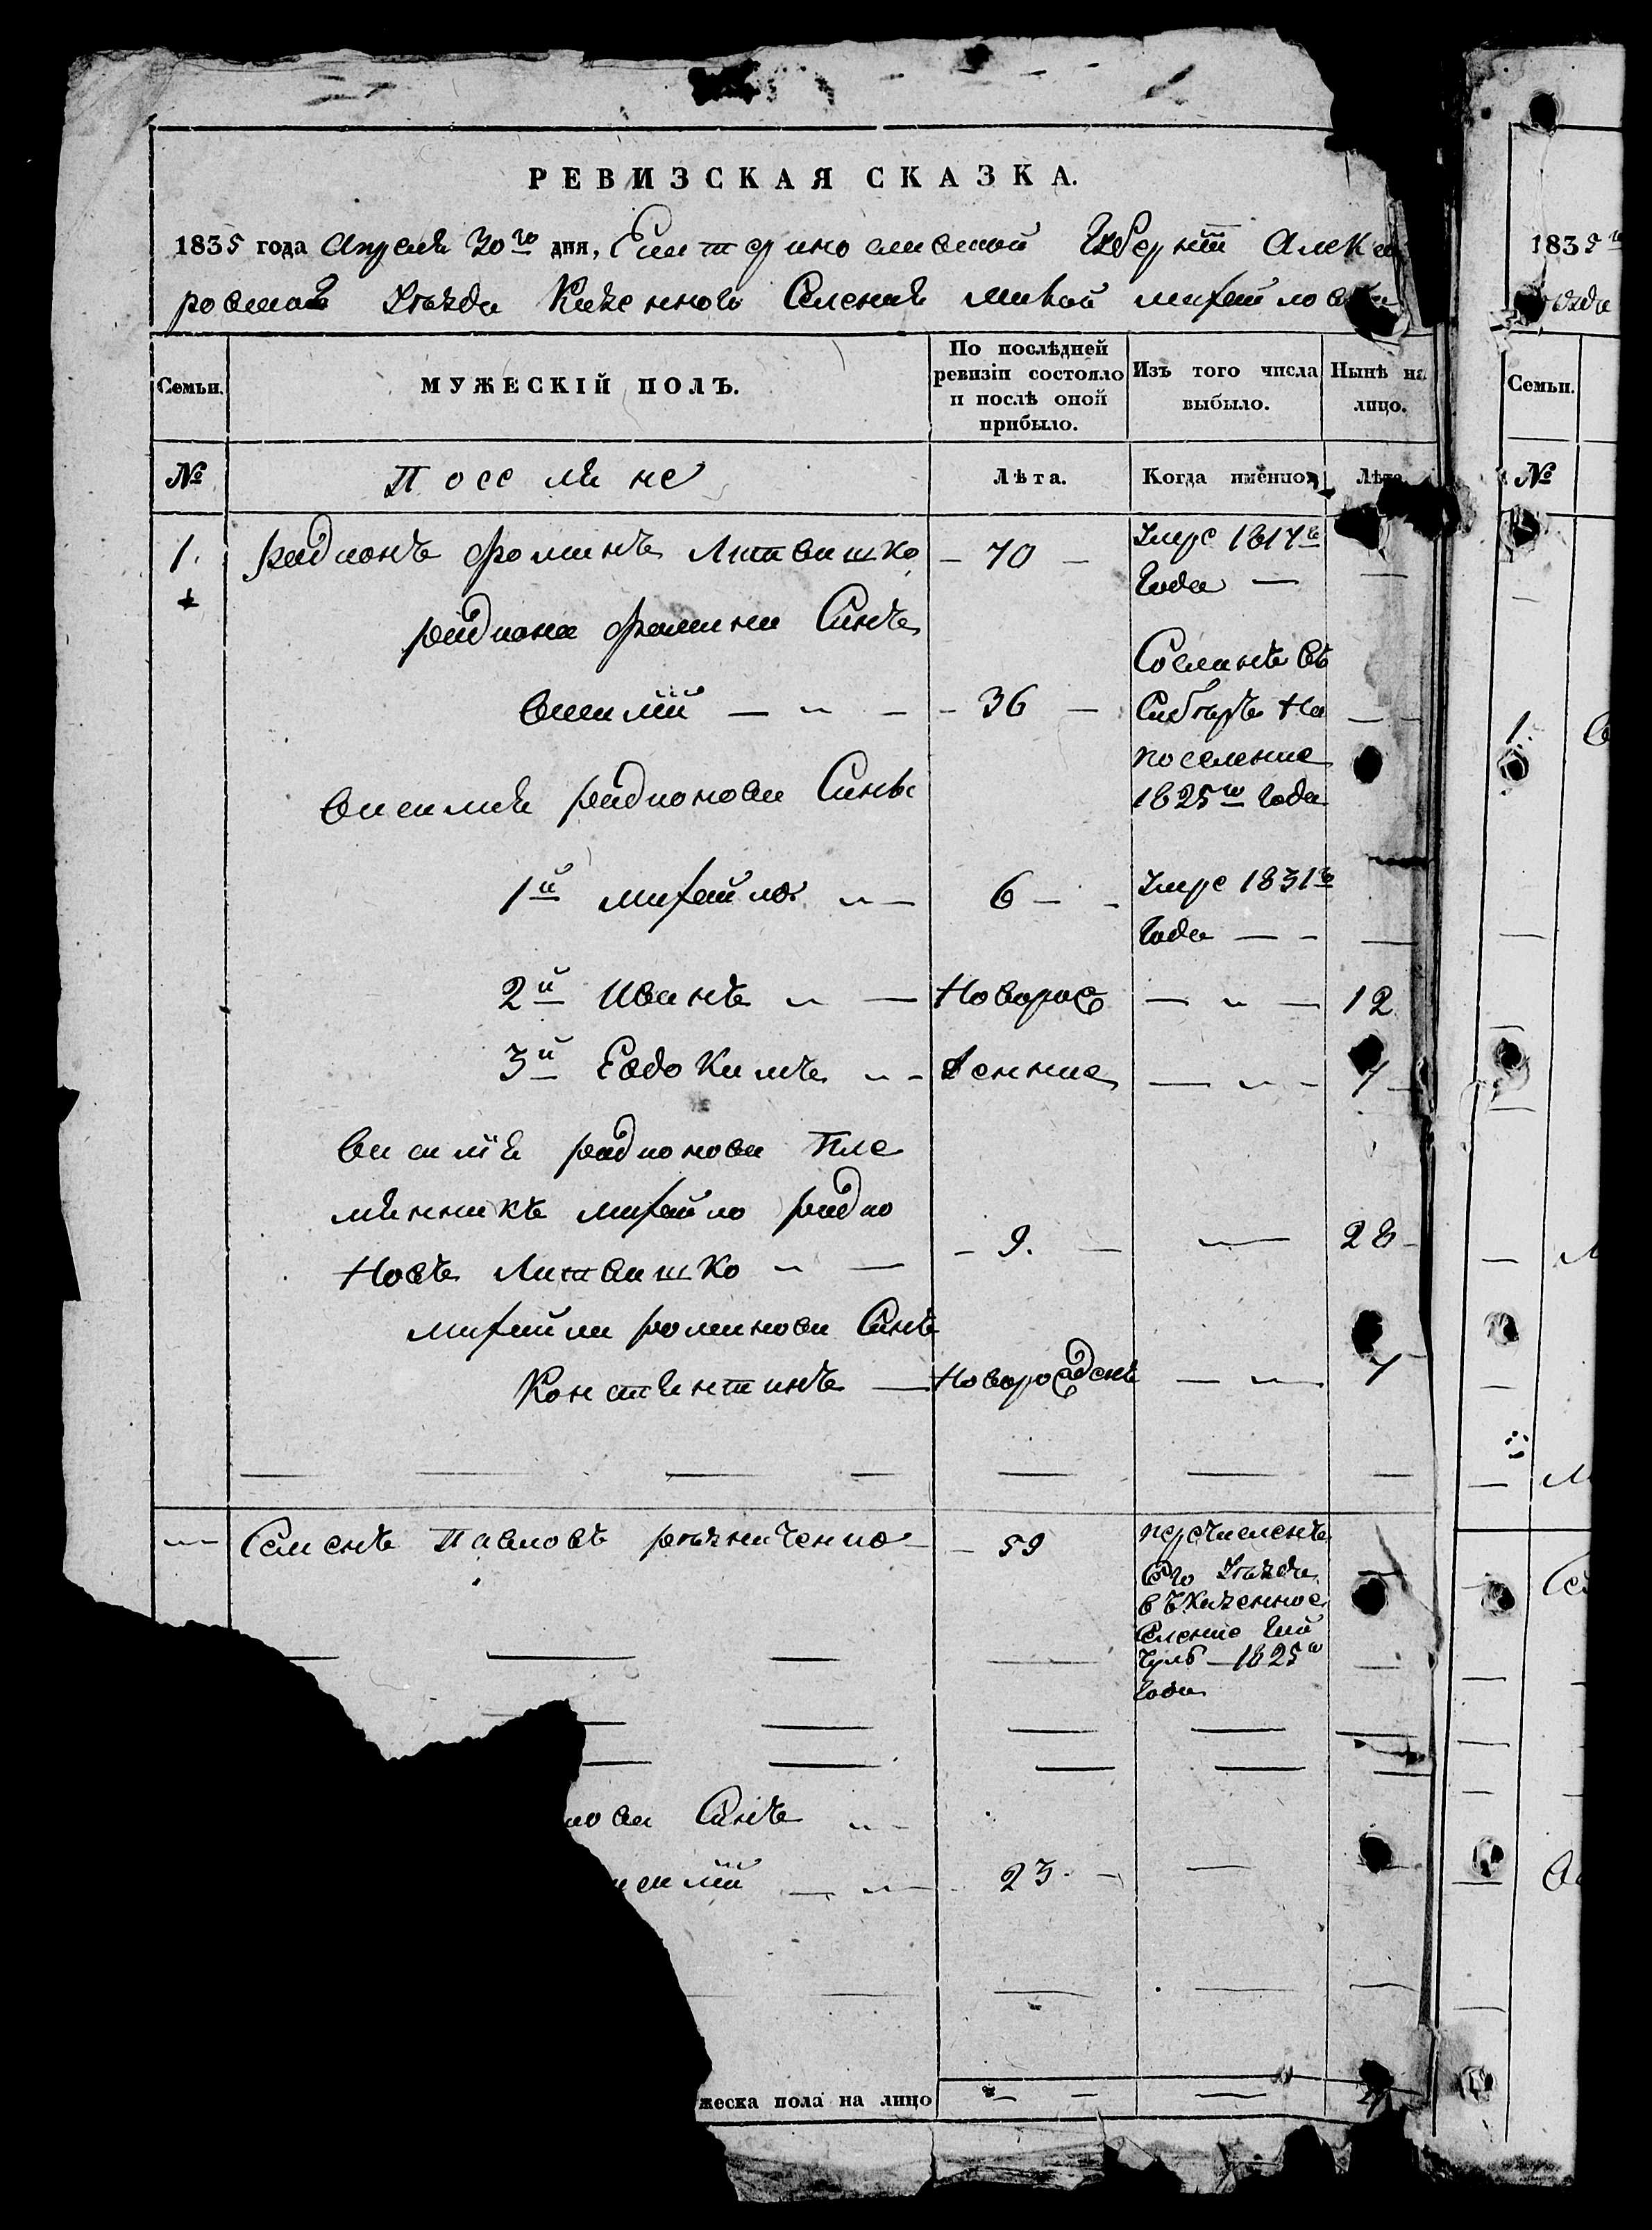 РЕВИЗСКАЯ СКАЗКА.
1835 года Апреля 30го дня, Екатеринославской Губерніи Алекса
ровской Уѣзда Казенного Селенія Михайловки
Семьи. МУЖЕСКІЙ ПОЛЪ. По послѣдней ревизіи состояло и послѣ оной прибыло. Изъ того числа выбыло. Нынѣ на лицо.
№ Поселяне Лѣта. Когда именно. Лѣта.
1. радионъ фоминъ Литвишко — 70 — Умре 1817го
года —
радиона фомина Синъ
василій — 〃 — — 36 — Сосланъ въ
Сибѣръ на
поселение
1825го года
василия радионова Синъ
1й михайло 〃 — 6 — Умре 1831го
года — —
2й Иванъ 〃 — Новорож — 〃 — 12
3й Евдокимъ 〃 — денние — 〃 — 7
василія радионова Пле
мянникъ михайло радио
новъ Литвишко 〃 — — 9. — — 28
михайла романова Синъ
Константинъ — Новорожденъ — 〃 — 7
Семенъ Павловъ рѣзниченко — 59 перечисленъ
сего Уѣзда
въ казенное
Селение
1825го
года
нова Синъ 〃 —
асилій — 〃 — 23 — —
жеска пола на лицо
1835
Уѣзда
Семьи.
№
1.